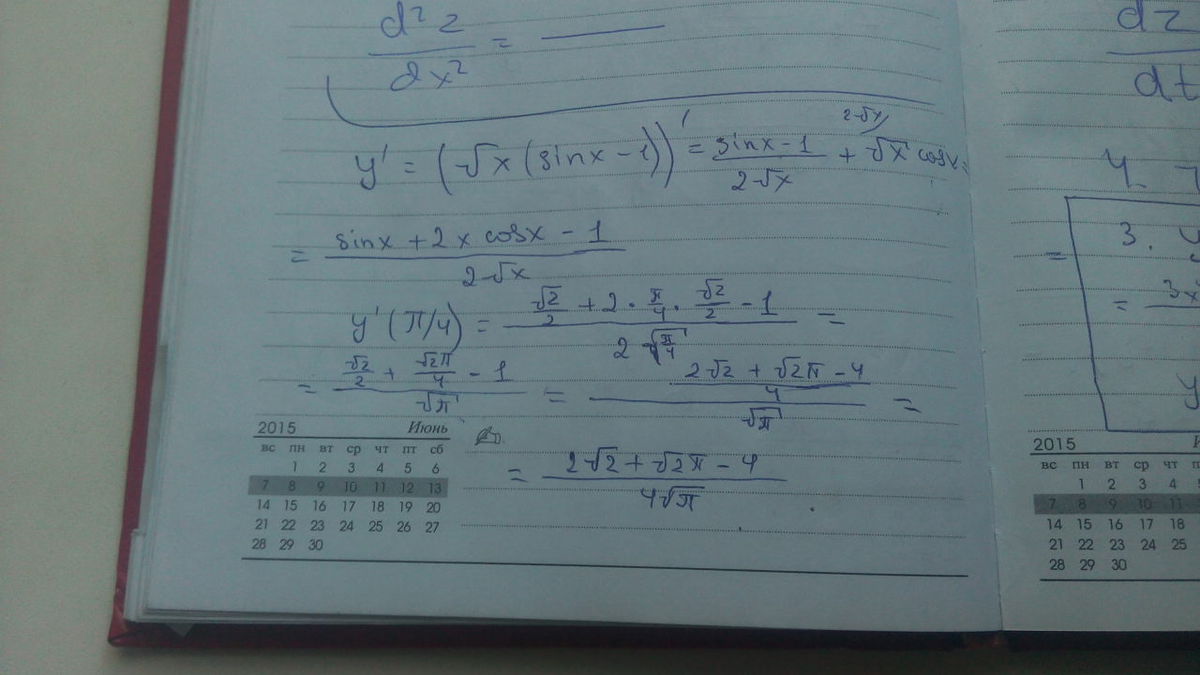 d²z / dx² = —
y' = (√x (sinx - 1))' = (sinx - 1) / (2√x) + √x cosx = 2√x/
= (sinx + 2x cosx - 1) / (2√x)
y'(π/4) = (√2/2 + 2 · π/4 · √2/2 - 1) / (2√(π/4)) =
= (√2/2 + √2π/4 - 1) / √π = ((2√2 + √2π - 4) / 4) / √π =
= (2√2 + √2π - 4) / (4√π)
2015 Июнь
вс пн вт ср чт пт сб
1 2 3 4 5 6
7 8 9 10 11 12 13
14 15 16 17 18 19 20
21 22 23 24 25 26 27
28 29 30
dz / dt
4.
3. y
=
= 3x
y
2015
вс пн вт ср чт п
1 2 3 4
7 8 9 10 11
14 15 16 17 18
21 22 23 24 25
28 29 30